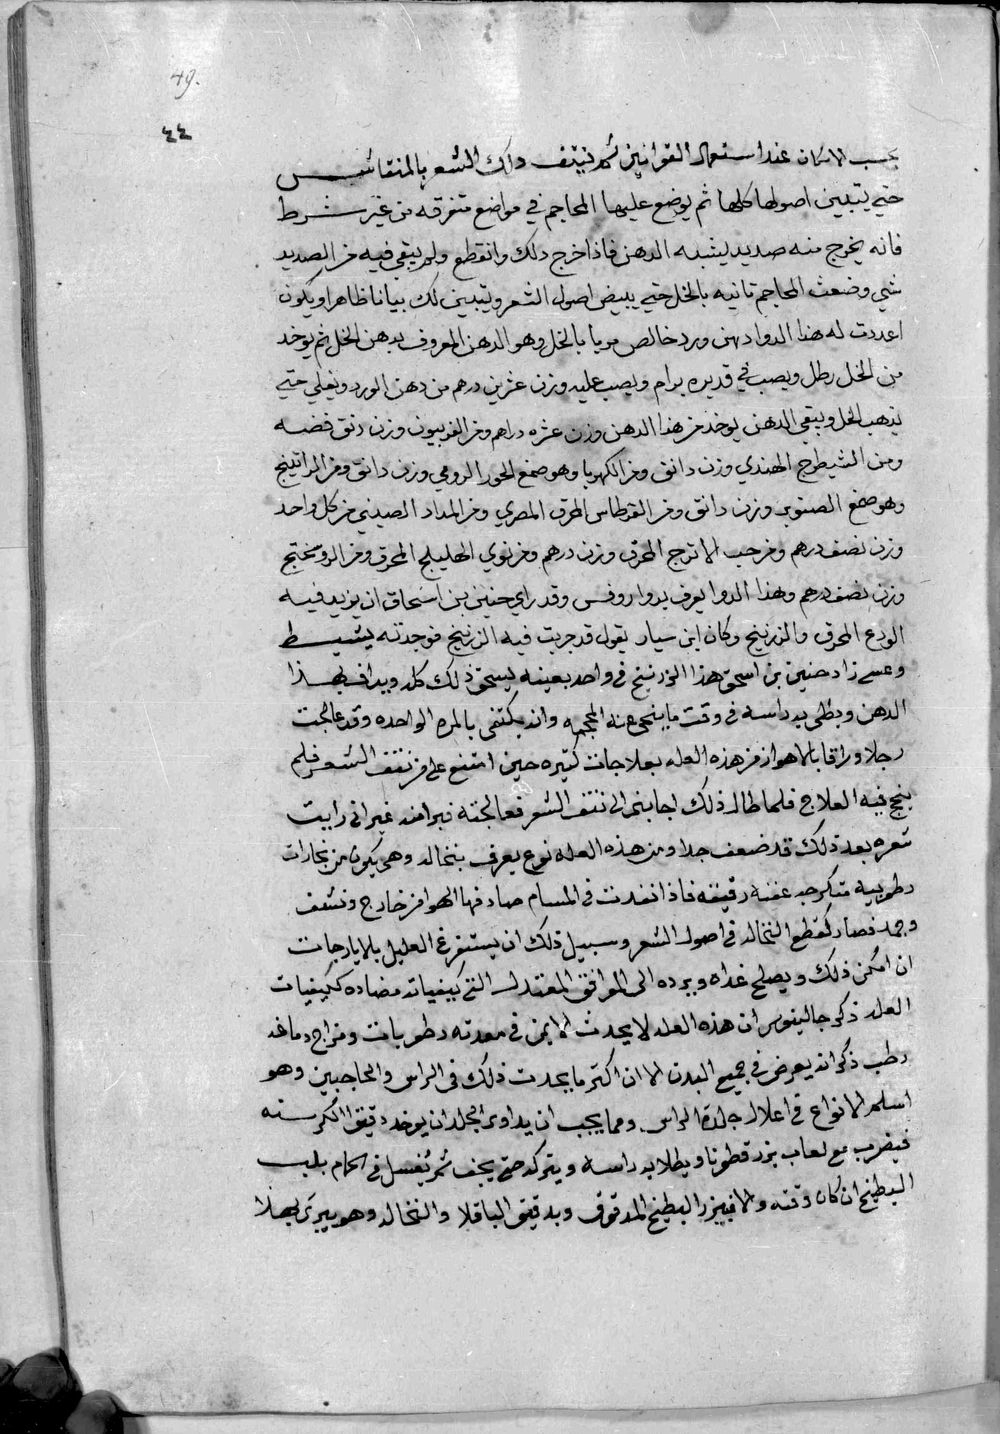 49.
٤٤
بحسب الامكان عند استعمال القوانين ثم ينتف ذلك الشعر بالمنقاش
حتي يتبين اصولها كلها ثم يوضع عليها المحاجم في مواضع متفرقه من غير شرط
فانه يخرج منه صديد يشبه الدهن فاذا خرج ذلك وانقطع ولم يبقي فيه من الصديد
شي وضعت المحاجم ثانيه بالخل حتي يبيض اصول الشعر ويتبين لك بيانا ظاهرا ويكون
اعددت له هذا الدوا دهن ورد خالص مربا بالخل وهو الدهن المعروف بدهن الخل ثم يوخد
من الخل رطل ويصب في قديره برام ويصب عليه وزن عشرين درهم من دهن الورد ويغلي حتي
يذهب الخل ويبقي الدهن يوخذ من هذا الدهن وزن عشره دراهم ومن الفربيون وزن دنق فضه
ومن الشيطرج الهندي وزن دانق ومن الكهربا وهو صمغ الحور الرومي وزن دانق ومن الراتينج
وهو صمغ الصنوبر وزن دانق ومن القرطاس المحرق المصري ومن المداد الصيني من كل واحد
وزن نصف درهم ومن حب الاترج المحرق وزن درهم ومن نوي الهليلج المحرق ومن الروسختج
وزن نصف درهم وهذا الدوا يعرف بدوا روفس وقد راي حنين بن اسحاق ان يزيد فيه
الودع المحرق والزرنيخ وكان ابن سيار يقول قد جربت فيه الزرنيخ فوجدته يشيط
وعسي زاد حنين بن اسحق هذا الزرنيخ في واحد بعينه يسحق ذلك كله ويداف بهذا
الدهن ويطلي به راسه في وقت ما ينحي عنه المحجمه وانه يكتفي بالمره الواحده وقد عالجت
رجلا وراقا بالاهواز من هذه العله بعلاجات كثيره حين امتنع علي من نتف الشعر فلم
ينجح فيه العلاج فلما طال ذلك اجابني الي نتف الشعر فعالجته فبرا منه غير اني رايت
شعره بعد ذلك قد ضعف جدا ومن هذه العله نوع يعرف بنخاله وهي يكون من بخارات
رطوبيه متكرجه عفنه رقيقه فاذا نفذت في المسام صادفها الهوا من خارج ونشف
وجمد فصار كقطع النخاله في اصول الشعر وسبيل ذلك ان يستفرغ العليل بالايارجات
ان امكن ذلك ويصلح غداه ويرده الي الموافق المعتدل التي كيفياته مضاده لكيفيات
العله ذكر جالينوس ان هذه العله لا يحدث الا بمن في معدته رطوبات ومزاج دماغه
رطب ذكر انه يعرض في جميع البدن الا ان اكثر ما يحدث ذلك في الراس والحاجبين وهو
اسلم الانواع في اعلال جلدة الراس ومما يجب ان يداوي الجلد ان يوخد دقيق الكرسنه
فيضرب مع لعاب بزر قطونا ويطلا به راسه ويتركه حتي يجف ثم يغسل في الحمام بلب
البطيخ ان كان وقته والا فببزر البطيخ المدقوق وبدقيق الباقلا والنخاله وهو يبري بهذا